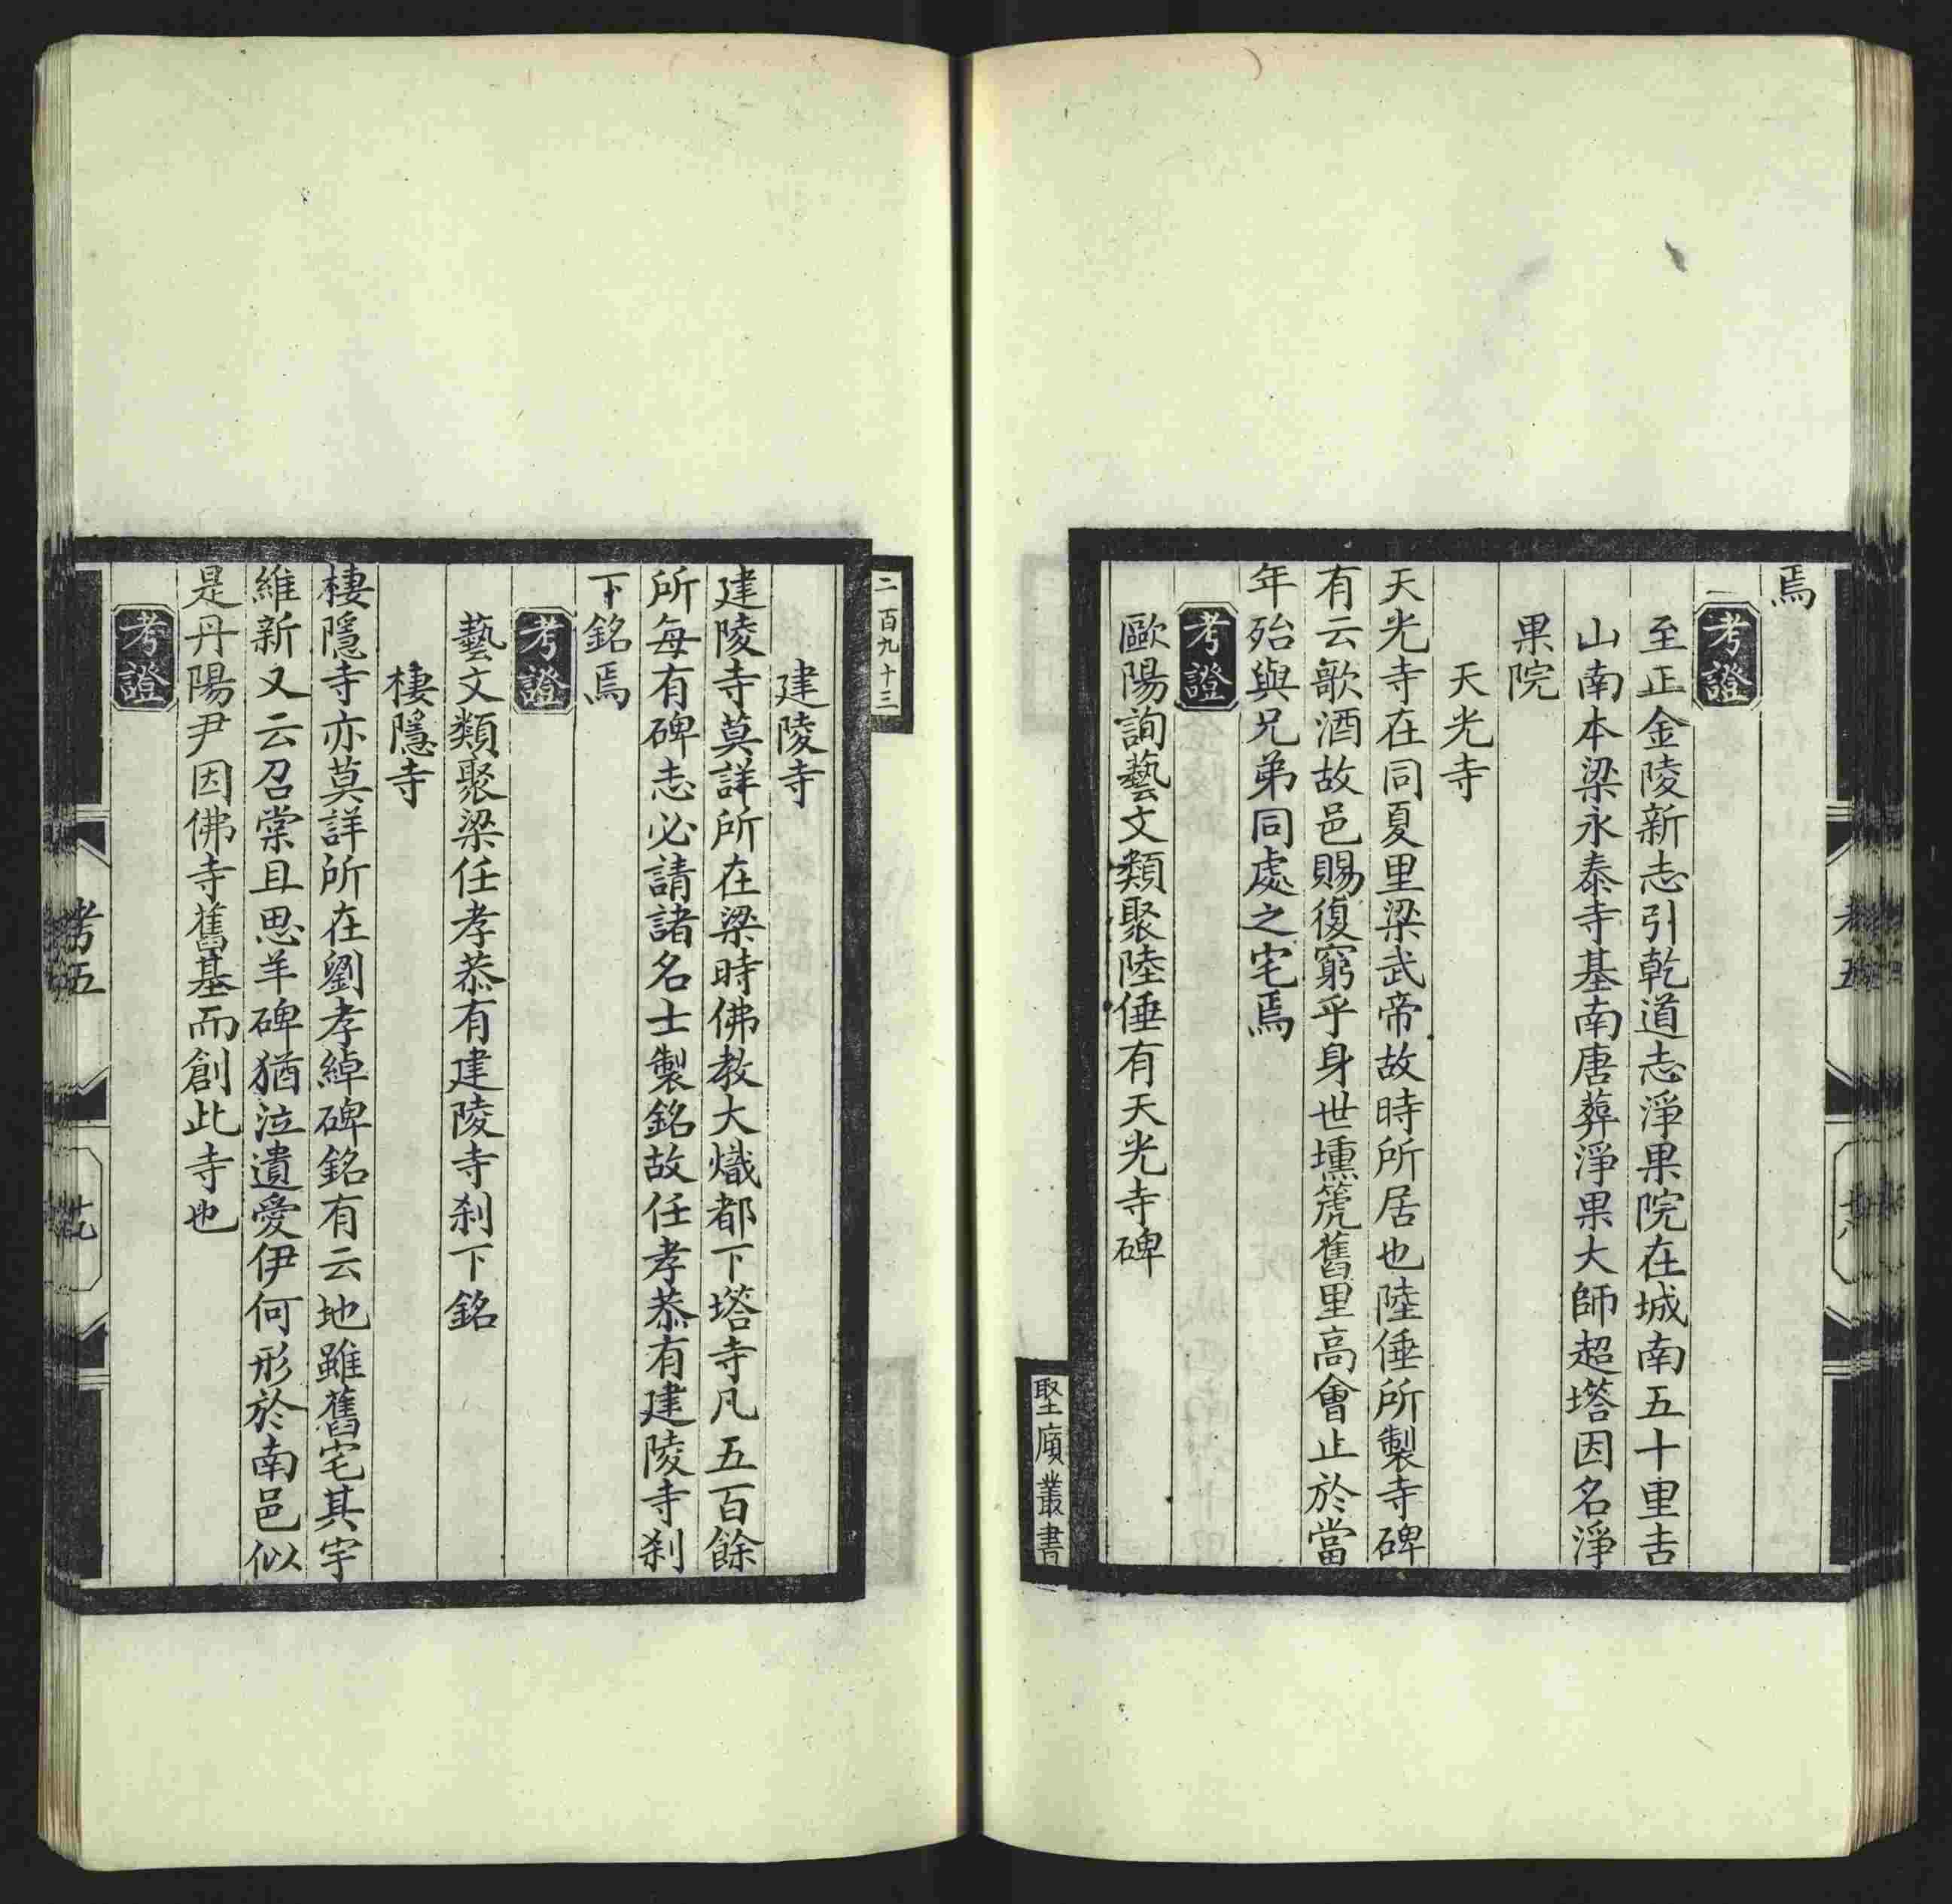 焉
考證
至正金陵新志引乾道志淨果院在城南五十里吉
山南本梁永泰寺基南唐葬淨果大師超塔因名淨
果院
天光寺
天光寺在同夏里梁武帝故時所居也陸倕所製寺碑
有云歌酒故邑賜復窮乎身世壎篪舊里高會止於當
年殆與兄弟同處之宅焉
考證
歐陽詢藝文類聚陸倕有天光寺碑
堅廎叢書
二百九十三
建陵寺
建陵寺莫詳所在梁時佛教大熾都下塔寺凡五百餘
所每有碑志必請諸名士製銘故任孝恭有建陵寺刹
下銘焉
考證
藝文類聚梁任孝恭有建陵寺刹下銘
棲隱寺
棲隱寺亦莫詳所在劉孝綽碑銘有云地雖舊宅其宇
維新又云召棠且思羊碑猶泣遺愛伊何形於南邑似
是丹陽尹因佛寺舊基而創此寺也
考證
考五